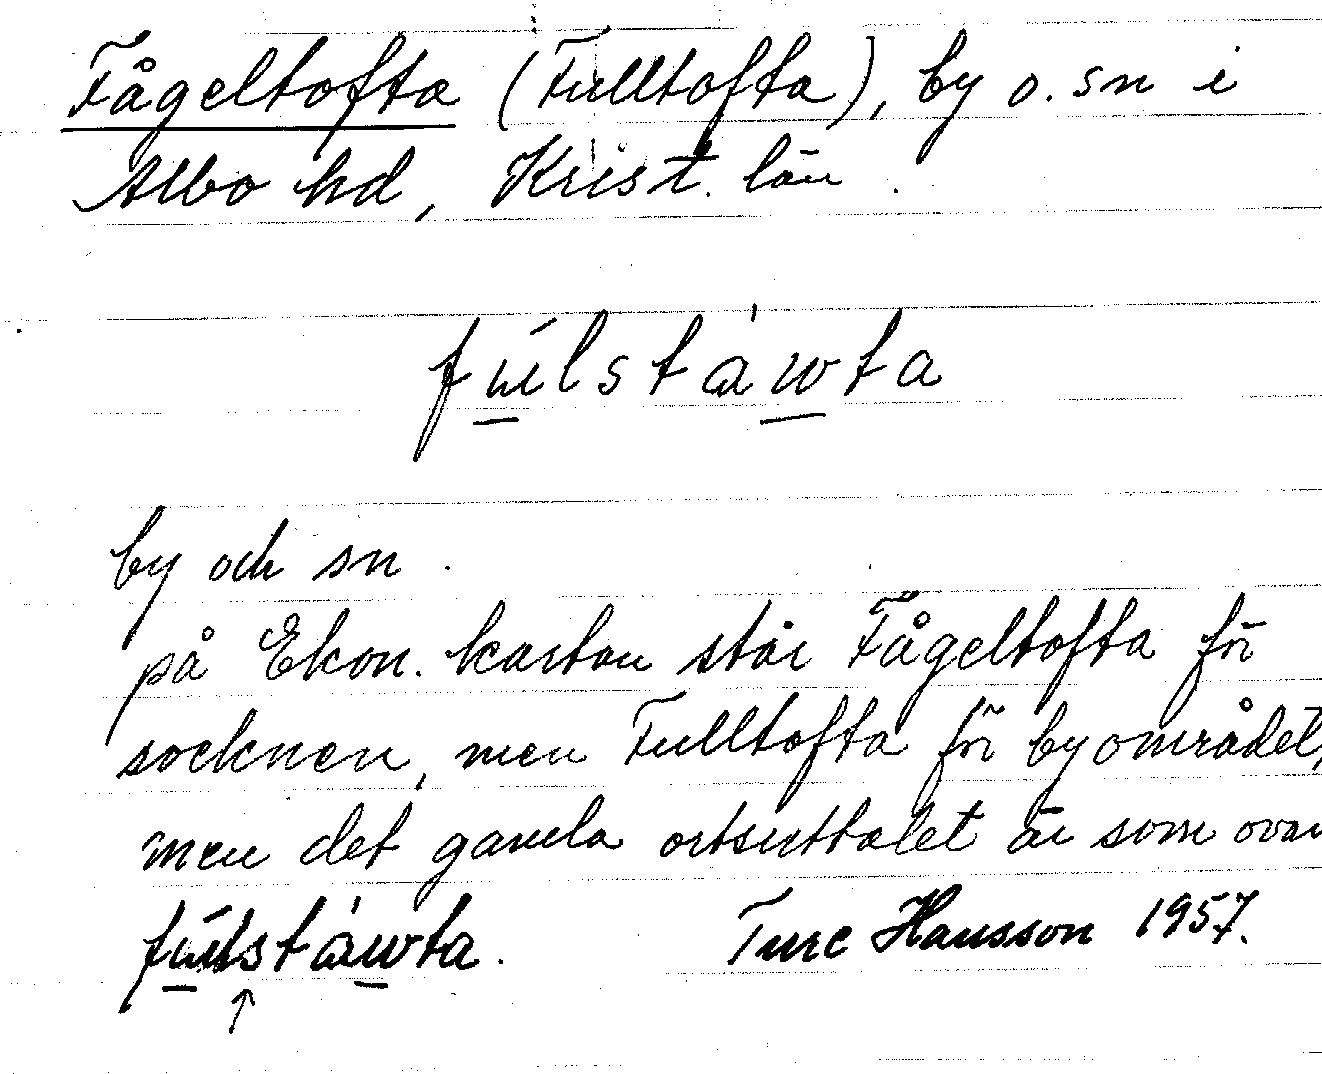 Fågeltofta (Fulltofta), by o. sn i
Albo hd, Krist. län.
fúlstàwta
by och sn.
på Ekon. kartan står Fågeltofta för
socknen, men Fulltofta för byområdet,
men det gamla ortsuttalet är som ovan
fúlstàwta. Ture Hansson 1957.
↑